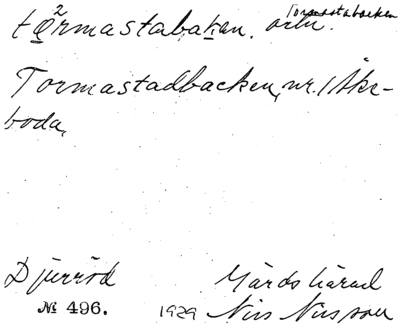 törmastabaken. ortn. Tormastabacken
Tormastadbacken, nr. 1 Åke-
boda,
Djurröd Gärds härad
№ 496. 1929 Nils Nilsson